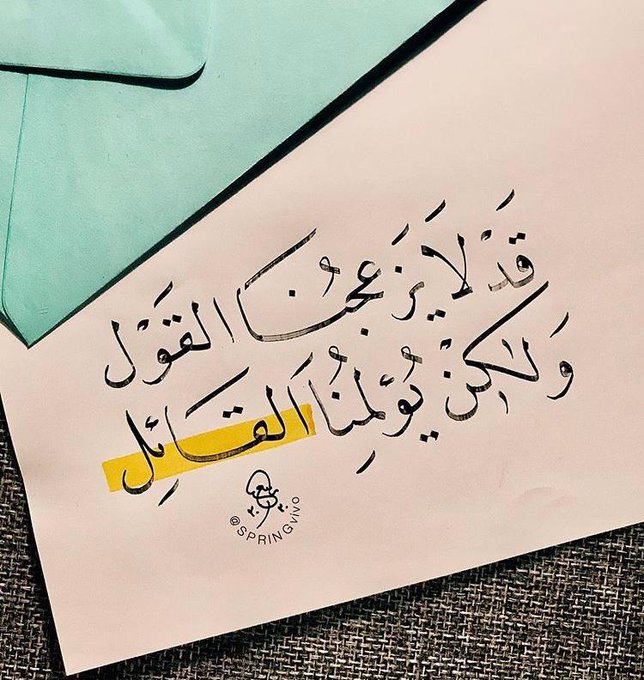 قَدْ لَا يَزعجُنا القَوْل
وَلٰكِنْ يُؤلمِنُا القَائِل
@SPRINGvivo